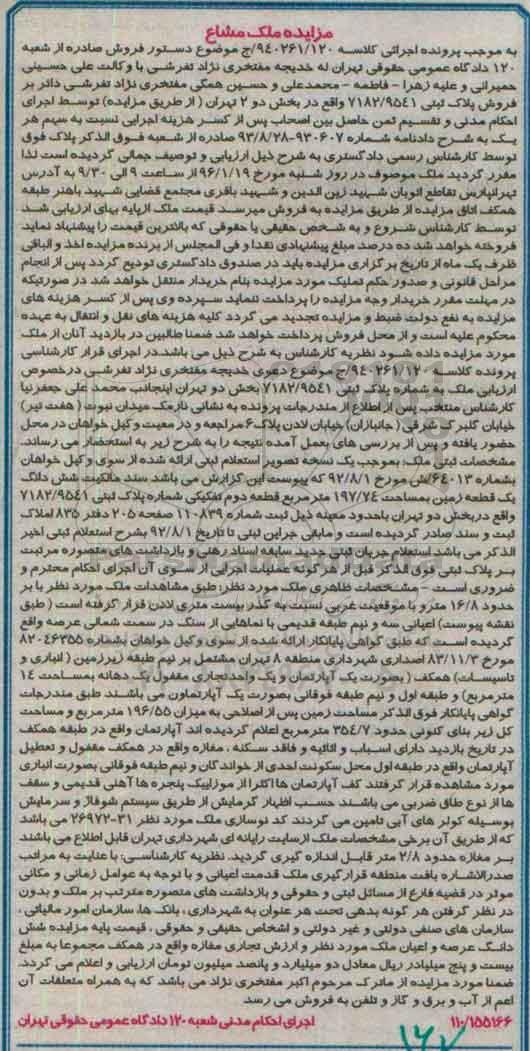 مزایده ملک مشاع
به موجب پرونده اجرائی کلاسه ۹۴۰۲۶۱/۱۲۰/ج موضوع دستور فروش صادره از شعبه
۱۲۰ دادگاه عمومی حقوقی تهران له خدیجه مفتخری نژاد تفرشی با وکالت علی حسینی
حمیرانی و علیه زهرا - فاطمه - محمدعلی و حسین همگی مفتخری نژاد تفرشی دائر بر
فروش پلاک ثبتی ۷۱۸۲/۹۵۴۱ واقع در بخش دو ۲ تهران ( از طریق مزایده) توسط اجرای
احکام مدنی و تقسیم ثمن حاصل بین اصحاب پس از کسر هزینه اجرایی نسبت به سهم هر
یک به شرح دادنامه شماره ۹۳۰۶۰۷-۹۳/۸/۲۸ صادره از شعبه فوق الذکر پلاک فوق
توسط کارشناس رسمی دادگستری به شرح ذیل ارزیابی و توصیف جمالی گردیده است لذا
مقرر گردید ملک موصوف در روز شنبه مورخ ۹۶/۱/۱۹ از ساعت ۹ الی ۹/۳۰ به آدرس
تهرانپارس تقاطع اتوبان شهید زین الدین و شهید باقری مجتمع قضایی شهید باهنر طبقه
همکف اتاق مزایده از طریق مزایده به فروش میرسد قیمت ملک ازپایه بهای ارزیابی شد
توسط کارشناس شروع و به شخص حقیقی یا حقوقی که بالاترین قیمت را پیشنهاد نماید
فروخته خواهد شد ده درصد مبلغ پیشنهادی نقدا و فی المجلس از برنده مزایده اخذ و الباقی
ظرف یک ماه از تاریخ برگزاری مزایده باید در صندوق دادگستری تودیع گردد پس از انجام
مراحل قانونی و صدور حکم تملیک مورد مزایده بنام خریدار منتقل خواهد شد در صورتیکه
در مهلت مقرر خریدار وجه مزایده را پرداخت ننماید سپرده وی پس از کسر هزینه های
مزایده به نفع دولت ضبط و مزایده تجدید می گردد کلیه هزینه های نقل و انتقال به عهده
محکوم علیه است و از محل فروش پرداخت خواهد شد ضمنا طالبین در بازدید آنان از ملک
مورد مزایده داده شود نظریه کارشناس به شرح ذیل می باشد.در اجرای قرار کارشناسی
پرونده کلاسه ۹۴۰۲۶۱/۱۲۰/ج موضوع دعوی خدیجه مفتخری نژاد تفرشی درخصوص
ارزیابی ملک به شماره پلاک ثبتی ۷۱۸۲/۹۵۴۱ بخش دو تهران اینجانب محمد علی جعفرنیا
کارشناس منتخب پس از اطلاع از مندرجات پرونده به نشانی نارمک میدان نبوت ( هفت تیر)
خیابان گلبرگ شرقی ( جانبازان) خیابان لادن پلاک۶ مراجعه و در معیت وکیل خواهان در محل
حضور یافته و پس از بررسی های بعمل آمده نتیجه را به شرح زیر به استحضار می رساند.
مشخصات ثبتی ملک: بموجب یک نسخه تصویر استعلام ثبتی ارائه شده از سوی وکیل خواهان
بشماره ۶۴۰۱۳/ش مورخ ۹۲/۸/۱ که پیوست این گزارش می باشد سند مالکیت شش دانگ
یک قطعه زمین بمساحت ۱۹۷/۷۴ متر مربع قطعه دوم تفکیکی شماره پلاک ثبتی ۷۱۸۲/۹۵۴۱
واقع دربخش دو تهران باحدود معینه ذیل ثبت شماره ۱۱۰۸۳۹ صفحه ۲۰۵ دفتر ۸۳۵ املاک
ثبت و سند صادر گردیده است و مابقی جراین ثبتی تا تاریخ ۹۲/۸/۱ بشرح استعلام ثبتی اخیر
الذکر می باشد استعلام جریان ثبتی جدید سابقه اسناد رهنی و بازداشت های متصوره مرتبت
بر پلاک ثبتی فوق الذکر قبل از هرگونه عملیات اجرایی از سوی آن اجرای احکام محترم و
ضروری است - مشخصات ظاهری ملک مورد نظر: طبق مشاهدات ملک مورد نظر با بر
حدود ۱۶/۸ مترو با موقعیت غربی نسبت به گذر بیست متری لادن قرار گرفته است ( طبق
نقشه پیوست) اعیانی سه و نیم طبقه قدیمی با نماهایی از سنگ در سمت شمالی عرصه واقع
گردیده است که طبق گواهی پایانکار ارائه شده از سوی وکیل خواهان بشماره ۸۲۰۴۶۳۵۵
مورخ ۸۳/۱۱/۳ اصداری شهرداری منطقه ۸ تهران مشتمل بر نیم طبقه زیرزمین ( انباری و
تاسیسات) همکف ( بصورت یک آپارتمان و یک واحد تجاری مقفول یک دهانه بمساحت ۱۴
مترمربع) و طبقه اول و نیم طبقه فوقانی بصورت یک آپارتماون می باشند طبق مندرجات
گواهی پایانکار فوق الذکر مساحت زمین پس از اصلاحی به میزان ۱۹۶/۵۵ متر مربع و مساحت
کل زیر بنای کنونی حدود ۳۵۴/۷ مترمربع اعلام گردیده اند آپارتمان واقع در طبقه همکف
در تاریخ بازدید دارای اسباب و اثاثیه و فاقد سکنه ، مغازه واقع در همکف مقفول و تعطیل
آپارتمان واقع در طبقه اول محل سکونت احدی از خواندگان و نیم طبقه فوقانی بصورت انباری
مورد مشاهده قرار گرفتند کف آپارتمان ها اکثرا از موزاییک پنجره ها آهنی قدیمی و سقف
ها از نوع طاق ضربی می باشند حسب اظهار گرمایش از طریق سیستم شوفاژ و سرمایش
بوسیله کولر های آبی تامین می گردند کد نوسازی ملک مورد نظر ۳۱-۲۶۹۷۲ می باشد
که از طریق آن برخی مشخصات ملک ازسایت رایانه ای شهرداری تهران قابل اطلاع می باشند
بر مغازه حدود ۲/۸ متر قابل اندازه گیری گردید. نظریه کارشناسی: با عنایت به مراتب
صدرالاشاره بافت منطقه قرارگیری ملک قدمت اعیانی و با توجه به عوامل زمانی و مکانی
موثر در قضیه فارغ از مسائل ثبتی و حقوقی و بازداشت های متصوره مترتب بر ملک و بدون
در نظر گرفتن هر گونه بدهی تحت هر عنوان به شهرداری ، بانک ها، سازمان امور مالیاتی ،
سازمان های صنفی دولتی و غیر دولتی و اشخاص حقیقی و حقوقی ، قیمت پایه مزایده شش
دانگ عرصه و اعیان ملک مورد نظر و ارزش تجاری مغازه واقع در همکف مجموعا به مبلغ
بیست و پنج میلیادر ریال معادل دو میلیارد و پانصد میلیون تومان ارزیابی و اعلام می گردد.
ضمنا مورد مزایده از ماترک مرحوم اکبر مفتخری نژاد می باشد که به همراه متعلقات آن
اعم از آب و برق و گاز و تلفن به فروش می رسد
۱۱۰/۱۵۵۱۶۶ اجرای احکام مدنی شعبه ۱۲۰ دادگاه عمومی حقوقی تهران